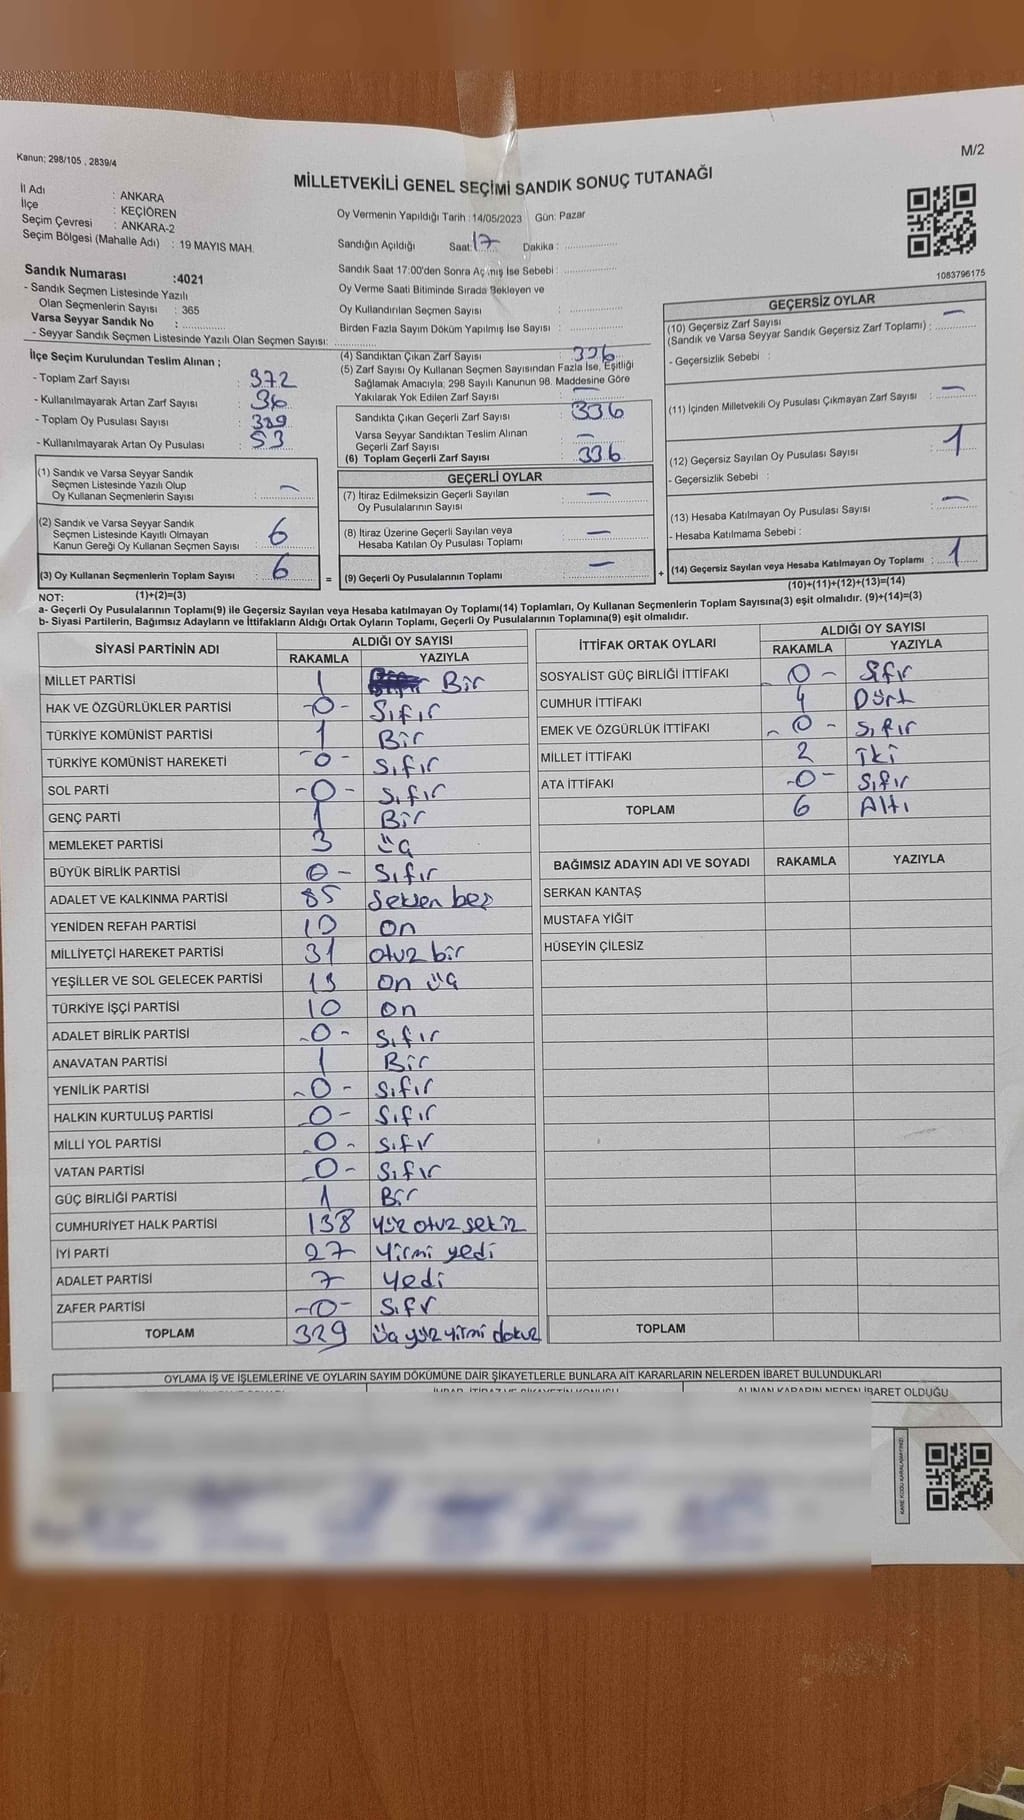 Kanun: 298/105 , 2839/4
M/2
MİLLETVEKİLİ GENEL SEÇİMİ SANDIK SONUÇ TUTANAĞI
İl Adı : ANKARA
İlçe : KEÇİÖREN
Seçim Çevresi : ANKARA-2
Seçim Bölgesi (Mahalle Adı) : 19 MAYIS MAH.
Sandık Numarası :4021
- Sandık Seçmen Listesinde Yazılı
Olan Seçmenlerin Sayısı : 365
Varsa Seyyar Sandık No :
- Seyyar Sandık Seçmen Listesinde Yazılı Olan Seçmen Sayısı:
Oy Vermenin Yapıldığı Tarih : 14/05/2023 Gün: Pazar
Sandığın Açıldığı Saat: 17 Dakika :
Sandık Saat 17:00'den Sonra Açılmış İse Sebebi :
Oy Verme Saati Bitiminde Sırada Bekleyen ve
Oy Kullandırılan Seçmen Sayısı :
Birden Fazla Sayım Döküm Yapılmış İse Sayısı :
1083796175
İlçe Seçim Kurulundan Teslim Alınan ;
- Toplam Zarf Sayısı : 372
- Kullanılmayarak Artan Zarf Sayısı : 36
- Toplam Oy Pusulası Sayısı : 329
- Kullanılmayarak Artan Oy Pusulası : 53
(1) Sandık ve Varsa Seyyar Sandık
Seçmen Listesinde Yazılı Olup
Oy Kullanan Seçmenlerin Sayısı : –
(2) Sandık ve Varsa Seyyar Sandık
Seçmen Listesinde Kayıtlı Olmayan
Kanun Gereği Oy Kullanan Seçmen Sayısı : 6
(3) Oy Kullanan Seçmenlerin Toplam Sayısı : 6
(4) Sandıktan Çıkan Zarf Sayısı : 336
(5) Zarf Sayısı Oy Kullanan Seçmen Sayısından Fazla İse, Eşitliği
Sağlamak Amacıyla; 298 Sayılı Kanunun 98. Maddesine Göre
Yakılarak Yok Edilen Zarf Sayısı : –
Sandıkta Çıkan Geçerli Zarf Sayısı : 336
Varsa Seyyar Sandıktan Teslim Alınan
Geçerli Zarf Sayısı : –
(6) Toplam Geçerli Zarf Sayısı : 336
GEÇERLİ OYLAR
(7) İtiraz Edilmeksizin Geçerli Sayılan
Oy Pusulalarının Sayısı : –
(8) İtiraz Üzerine Geçerli Sayılan veya
Hesaba Katılan Oy Pusulası Toplamı : –
= (9) Geçerli Oy Pusulalarının Toplamı : –
GEÇERSİZ OYLAR
(10) Geçersiz Zarf Sayısı
(Sandık ve Varsa Seyyar Sandık Geçersiz Zarf Toplamı) : –
- Geçersizlik Sebebi :
(11) İçinden Milletvekili Oy Pusulası Çıkmayan Zarf Sayısı : –
(12) Geçersiz Sayılan Oy Pusulası Sayısı : 1
- Geçersizlik Sebebi :
(13) Hesaba Katılmayan Oy Pusulası Sayısı : –
- Hesaba Katılmama Sebebi :
+ (14) Geçersiz Sayılan veya Hesaba Katılmayan Oy Toplamı : 1
NOT: (1)+(2)=(3)
(10)+(11)+(12)+(13)=(14)
a- Geçerli Oy Pusulalarının Toplamı(9) ile Geçersiz Sayılan veya Hesaba katılmayan Oy Toplamı(14) Toplamları, Oy Kullanan Seçmenlerin Toplam Sayısına(3) eşit olmalıdır. (9)+(14)=(3)
b- Siyasi Partilerin, Bağımsız Adayların ve İttifakların Aldığı Ortak Oyların Toplamı, Geçerli Oy Pusulalarının Toplamına(9) eşit olmalıdır.
SİYASİ PARTİNİN ADI ALDIĞI OY SAYISI
RAKAMLA YAZIYLA
MİLLET PARTİSİ 1 Bir
HAK VE ÖZGÜRLÜKLER PARTİSİ -0- Sıfır
TÜRKİYE KOMÜNİST PARTİSİ 1 Bir
TÜRKİYE KOMÜNİST HAREKETİ -0- Sıfır
SOL PARTİ -0- Sıfır
GENÇ PARTİ 1 Bir
MEMLEKET PARTİSİ 3 üç
BÜYÜK BİRLİK PARTİSİ 0- Sıfır
ADALET VE KALKINMA PARTİSİ 85 Seksen beş
YENİDEN REFAH PARTİSİ 10 on
MİLLİYETÇİ HAREKET PARTİSİ 31 otuz bir
YEŞİLLER VE SOL GELECEK PARTİSİ 13 on üç
TÜRKİYE İŞÇİ PARTİSİ 10 on
ADALET BİRLİK PARTİSİ -0- Sıfır
ANAVATAN PARTİSİ 1 Bir
YENİLİK PARTİSİ -0- Sıfır
HALKIN KURTULUŞ PARTİSİ 0- Sıfır
MİLLİ YOL PARTİSİ 0- Sıfır
VATAN PARTİSİ 0- Sıfır
GÜÇ BİRLİĞİ PARTİSİ 1 Bir
CUMHURİYET HALK PARTİSİ 138 yüz otuz sekiz
İYİ PARTİ 27 yirmi yedi
ADALET PARTİSİ 7 yedi
ZAFER PARTİSİ -0- Sıfır
TOPLAM 329 üç yüz yirmi dokuz
İTTİFAK ORTAK OYLARI ALDIĞI OY SAYISI
RAKAMLA YAZIYLA
SOSYALİST GÜÇ BİRLİĞİ İTTİFAKI -0- Sıfır
CUMHUR İTTİFAKI 4 Dört
EMEK VE ÖZGÜRLÜK İTTİFAKI -0- Sıfır
MİLLET İTTİFAKI 2 iki
ATA İTTİFAKI -0- Sıfır
TOPLAM 6 Altı
BAĞIMSIZ ADAYIN ADI VE SOYADI RAKAMLA YAZIYLA
SERKAN KANTAŞ
MUSTAFA YİĞİT
HÜSEYİN ÇİLESİZ
TOPLAM
OYLAMA İŞ VE İŞLEMLERİNE VE OYLARIN SAYIM DÖKÜMÜNE DAİR ŞİKAYETLERLE BUNLARA AİT KARARLARIN NELERDEN İBARET BULUNDUKLARI
ALINAN KARARIN NEDEN İBARET OLDUĞU